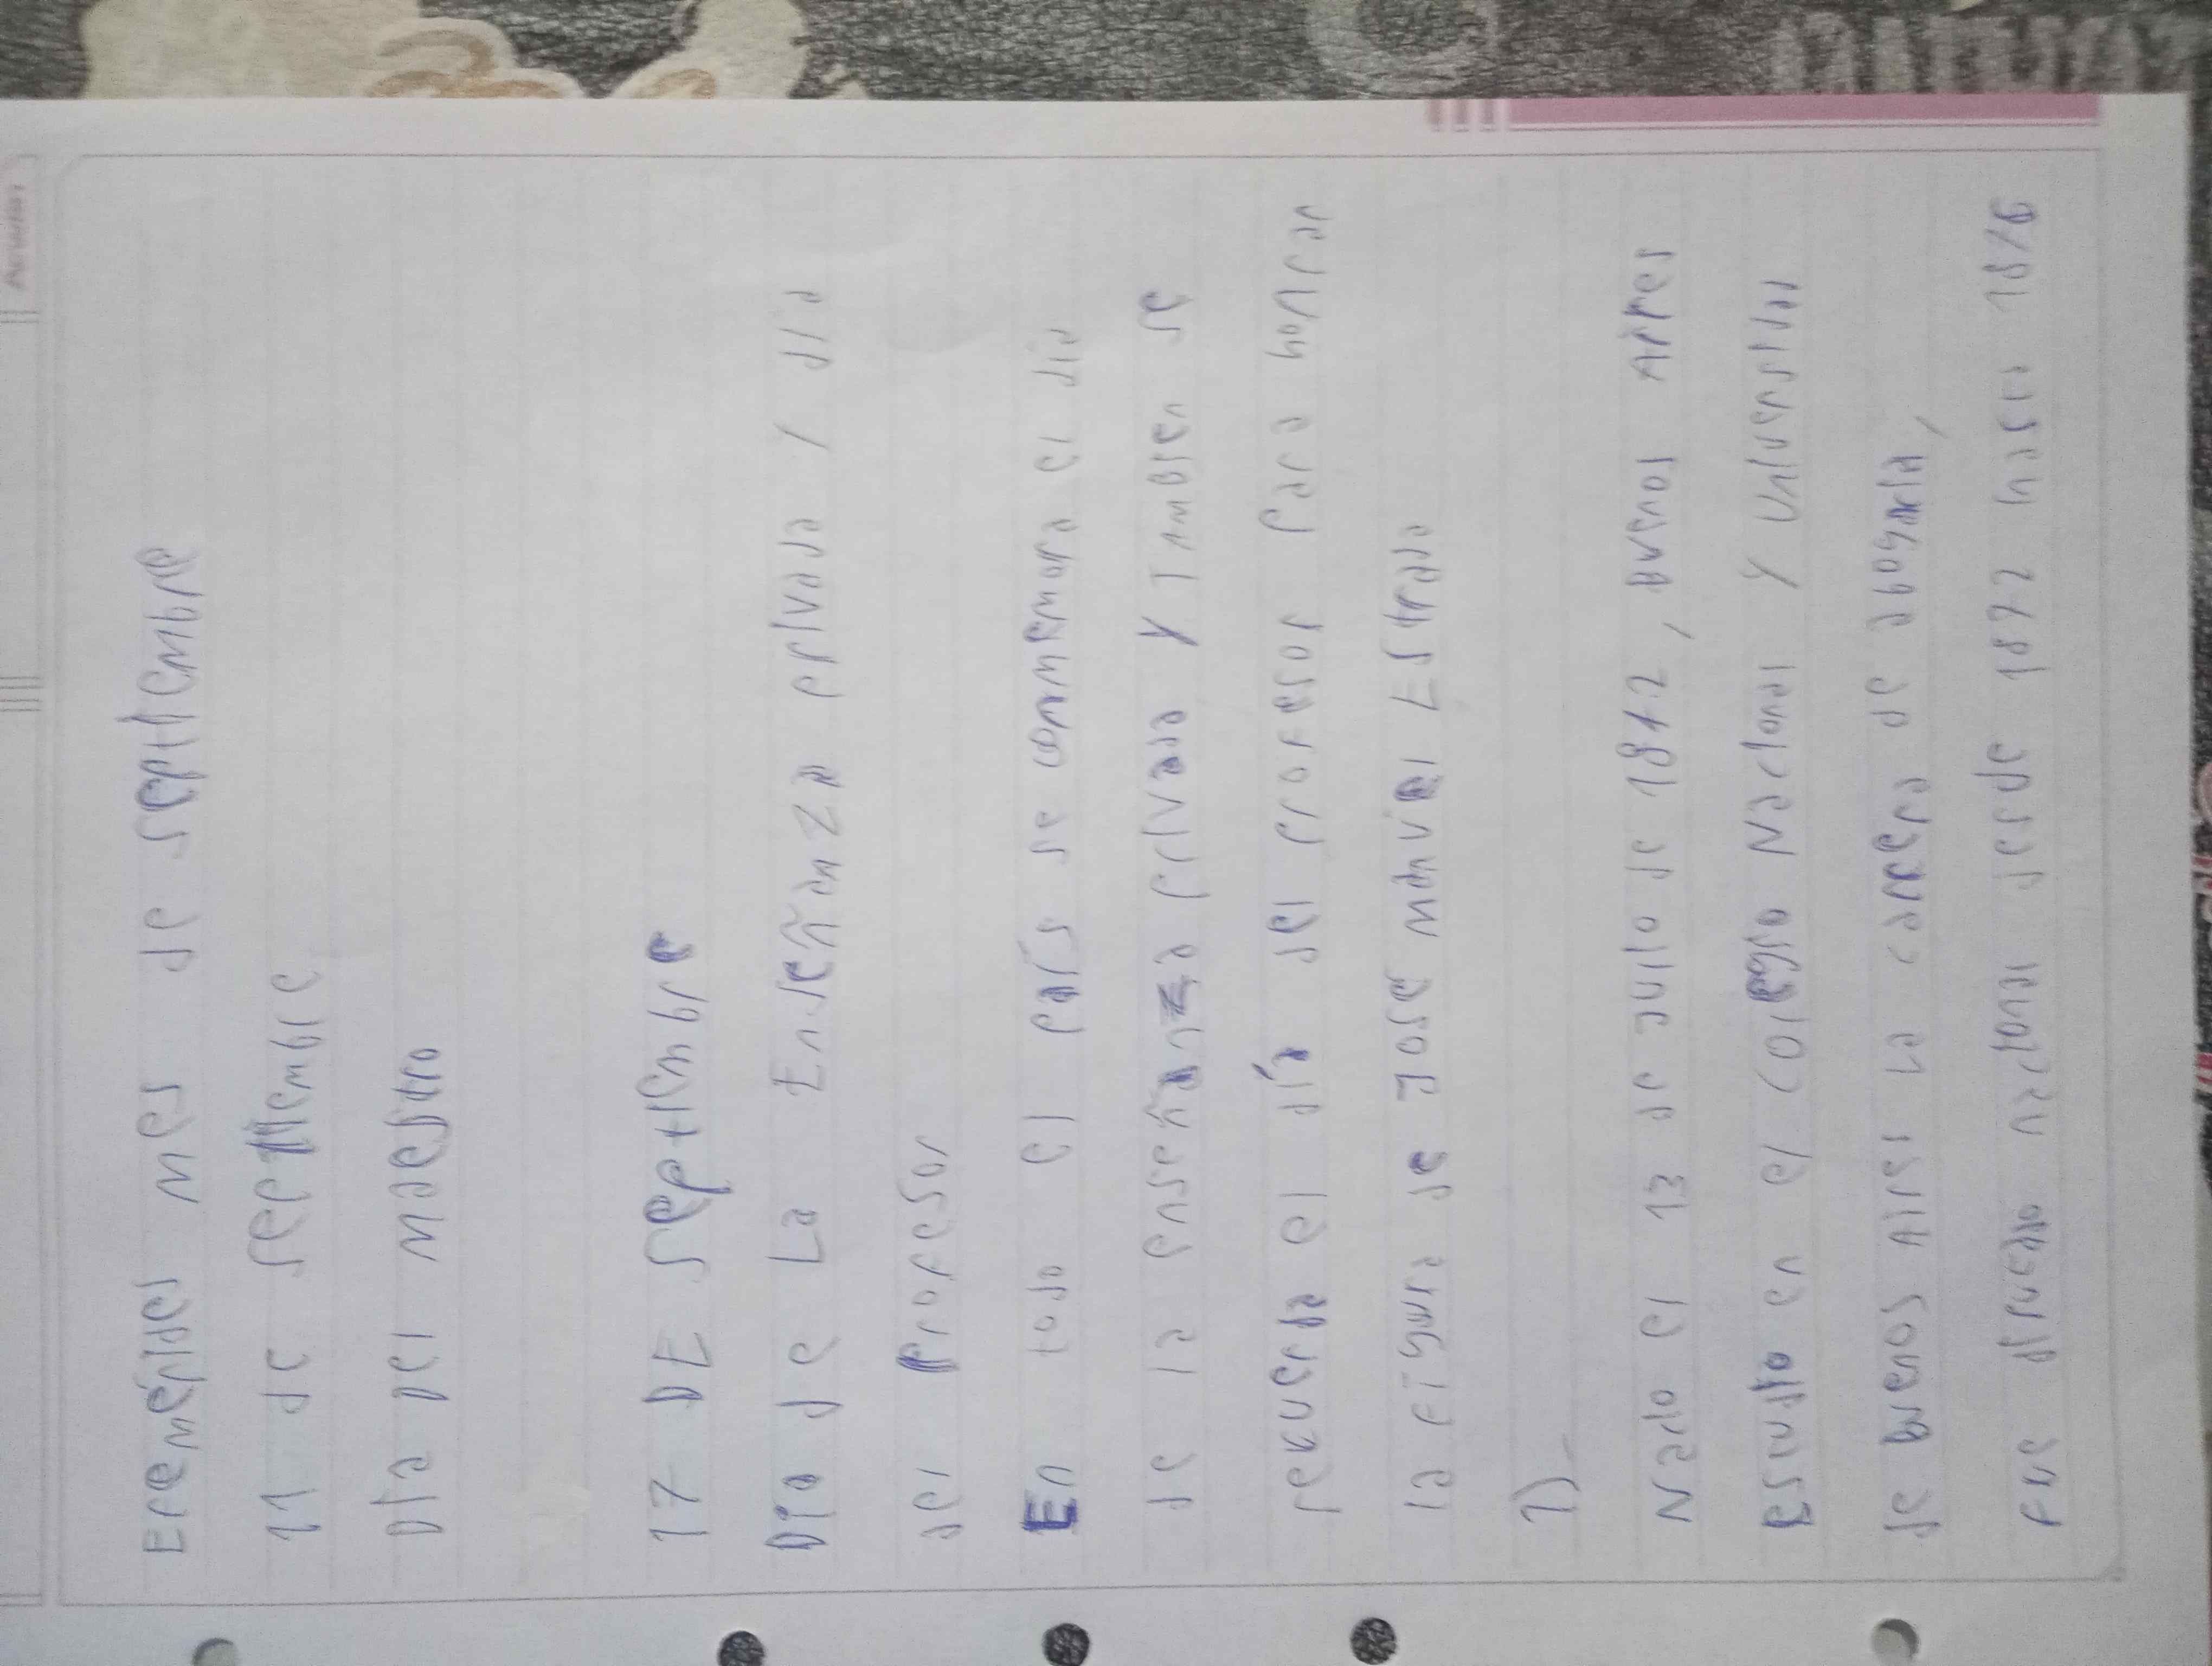 Efemérides mes de septiembre
11 de septiembre
Día del maestro
17 DE septiembre
Día de La Enseñanza privada y día
del Profesor
En todo el país se conmemora el día
de la enseñanza privada y Tambien se
rekuerda el día del profesor Para honrar
la Figura de José manuel Estrada
1)_
Nacio el 13 de julio de 1842, Buenos Aires
estudio en el colegio Nacional y universidad
de buenos Aires La carrera de abogacía,
Fue diputado nacional desde 1872 hasta 1876